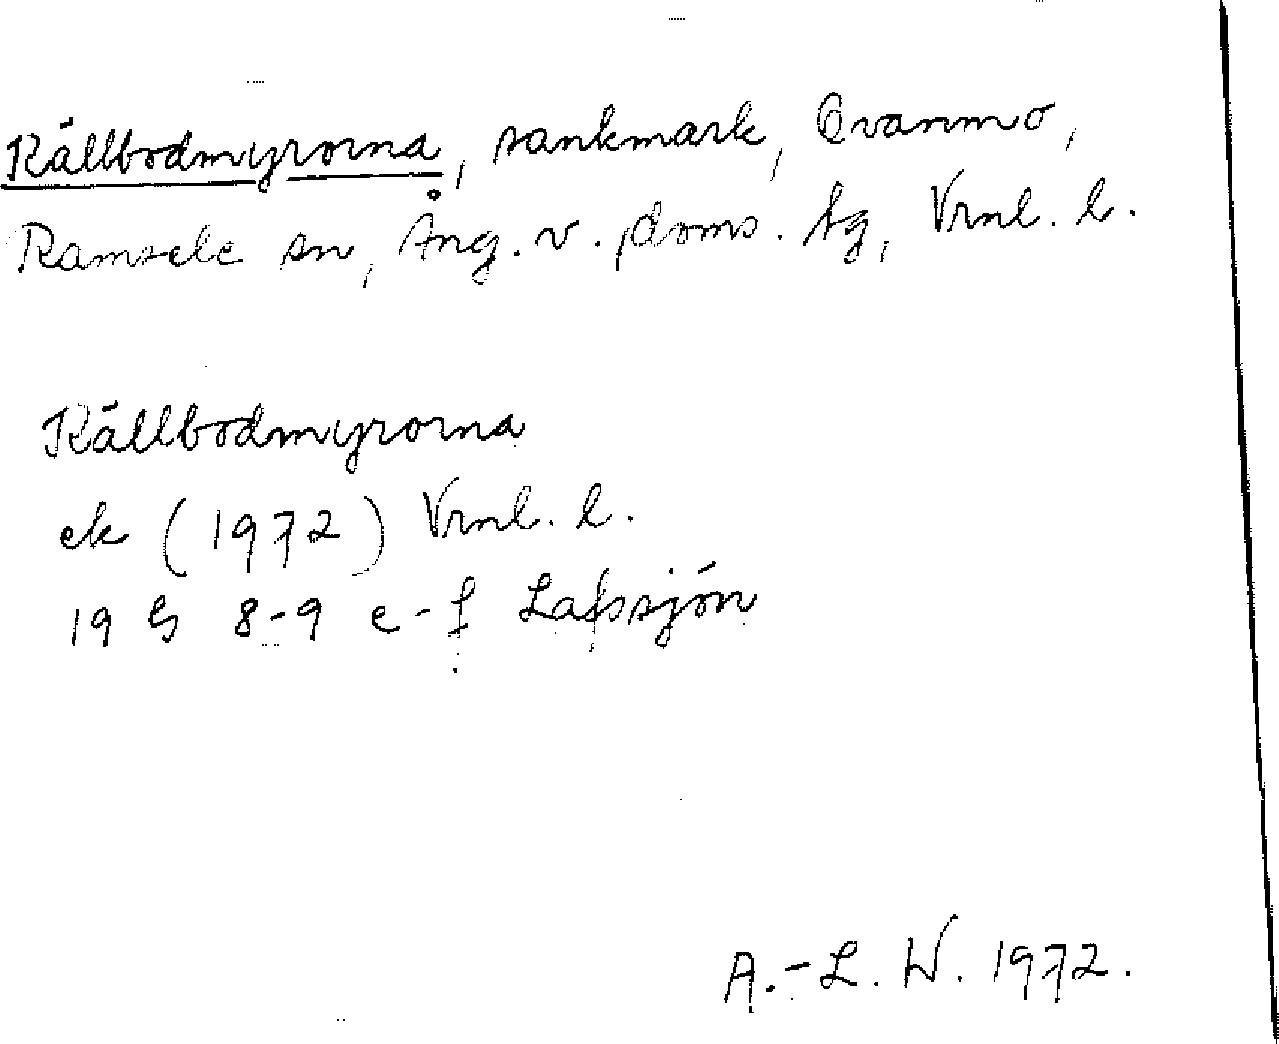 Rällbodmyrorna, sankmark, Ovanmo,
Ramsele sn, Ång. v. doms. tg, Vrnl. l.
Rällbodmyrorna
ek (1972) Vrnl. l.
19 G 8-9 e-f Lafssjön
A.-L. W. 1972.